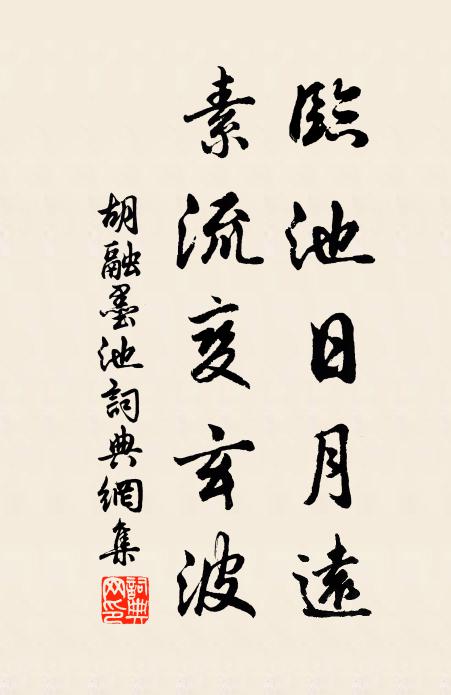 臨池日月遠
素流变玄波
胡融墨池詞典網集
詞典网印